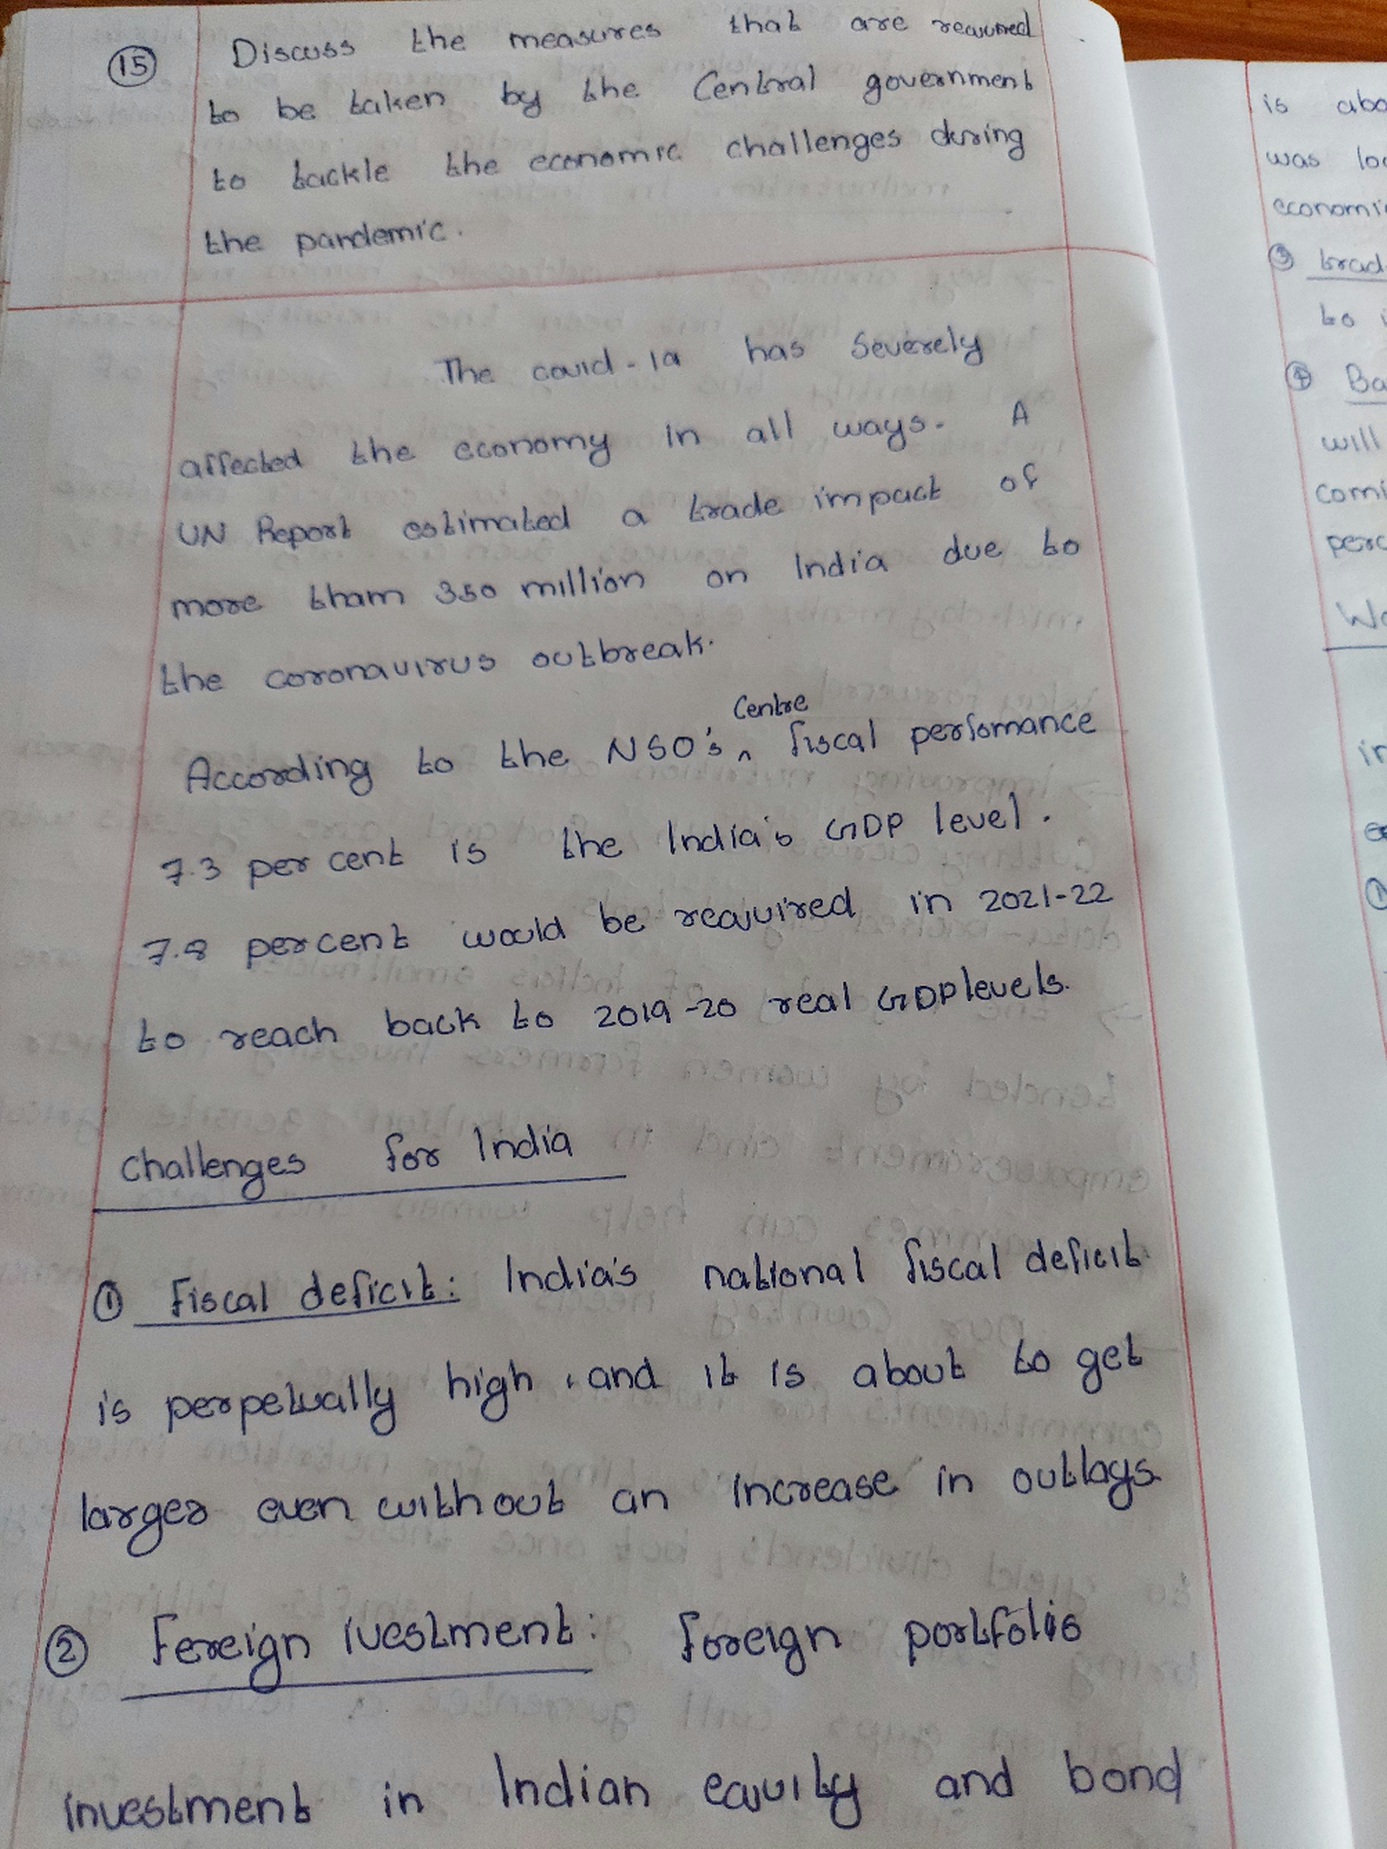 15
Discuss the measures that are required
to be taken by the Central government
to tackle the economic challenges during
the pandemic.
The covid-19 has severely
affected the economy in all ways. A
UN Report estimated a trade impact of
more tham 350 million on India due to
the coronavirus outbreak.
Centre
According to the NSO's ^ fiscal perfomance
7.3 per cent is the India's GDP level.
7.8 percent would be required in 2021-22
to reach back to 2019-20 real GDP levels.
Challenges for India
① Fiscal deficit: India's national fiscal deficit
is perpetually high, and it is about to get
larger even without an increase in outlays.
② Foreign ivestment: foreign portfolio
investment in Indian equity and bond
is abo
was loc
economi
③ trad
to i
④ Ba
will
comi
perc
Wa
in